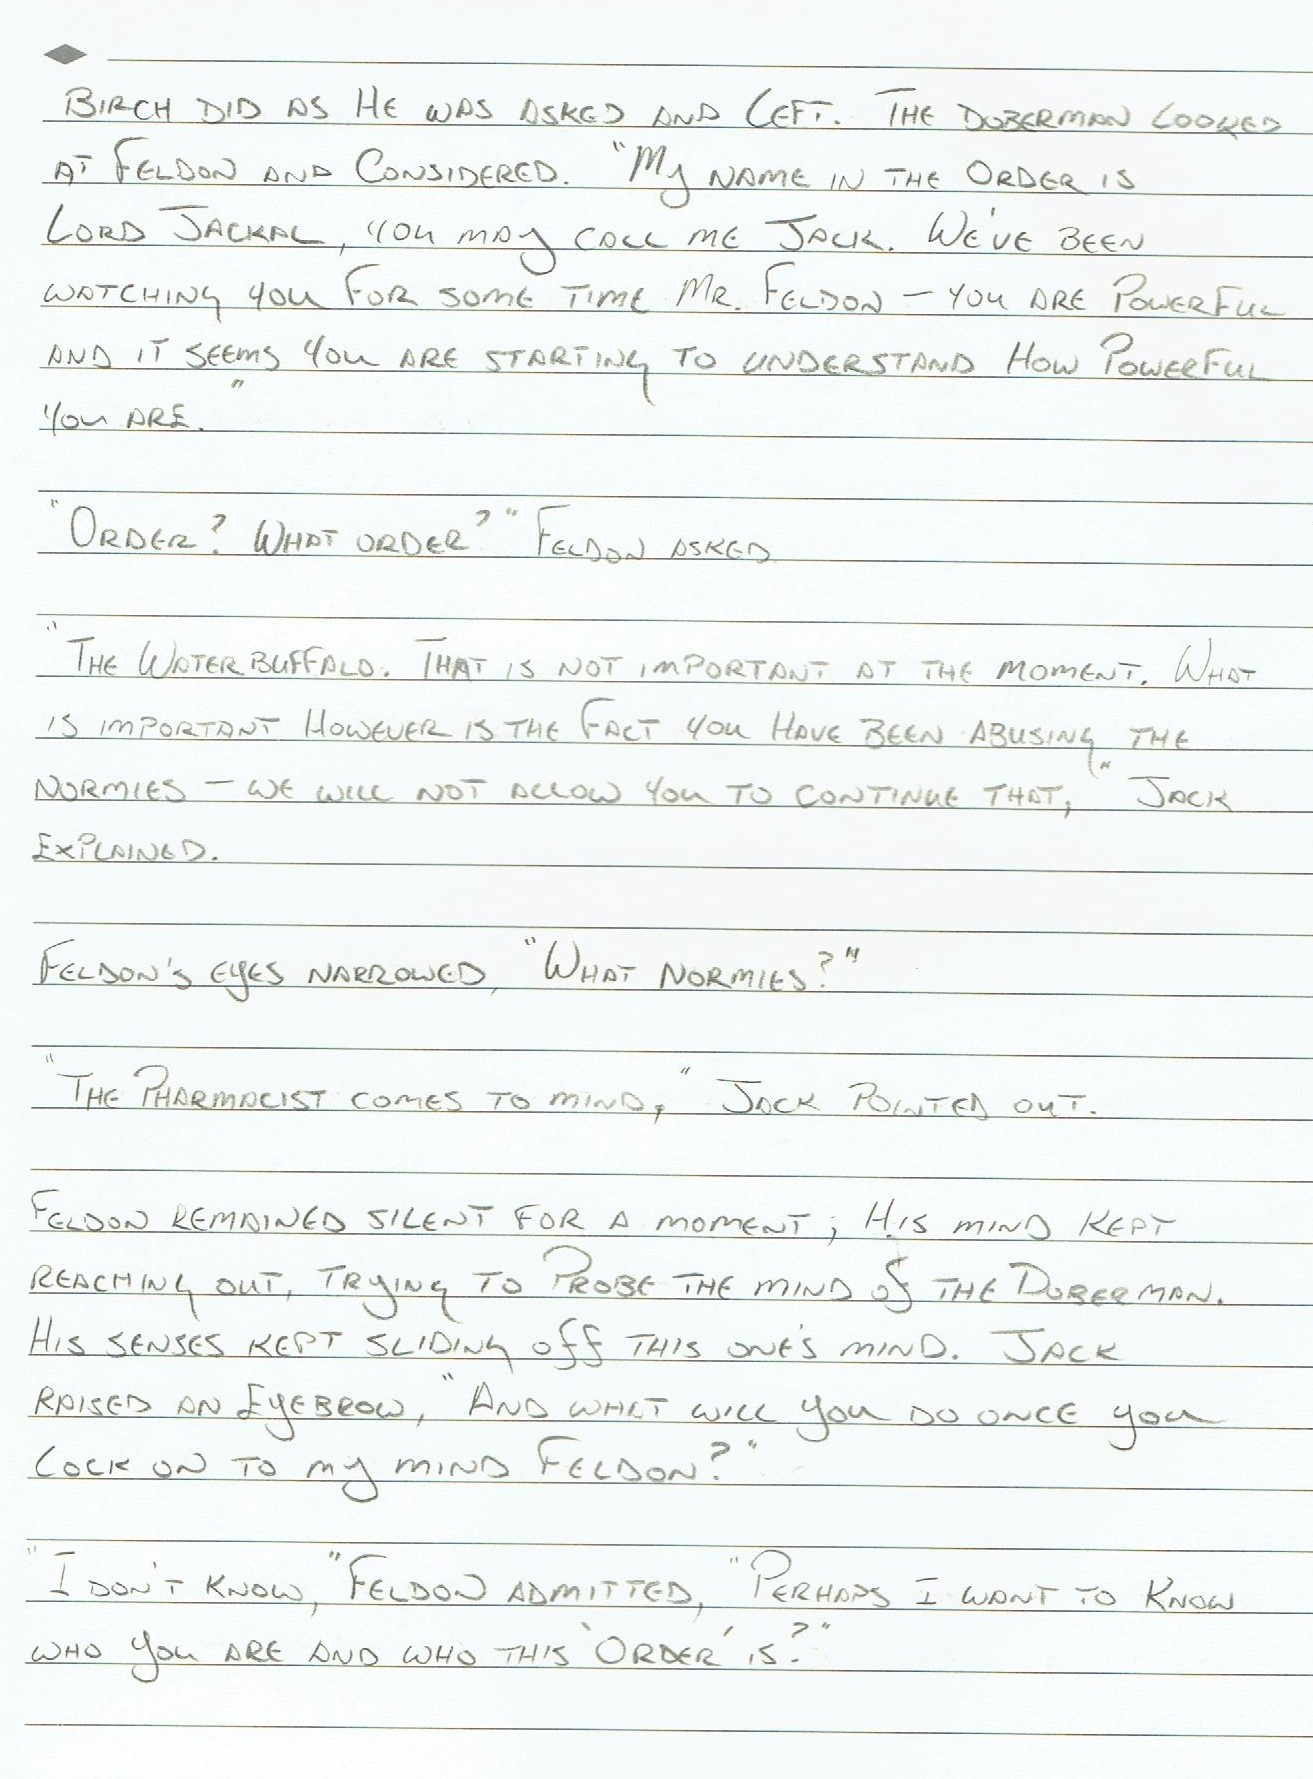 Birch did as he was asked and left. The Doberman looked
at Feldon and considered. "My name in the Order is
Lord Jackal, you may call me Jack. We've been
watching you for some time Mr. Feldon – you are powerful
and it seems you are starting to understand how powerful
you are."
"Order? What order?" Feldon asked
"The Water buffalo. That is not important at the moment. What
is important however is the fact you have been abusing the
normies – we will not allow you to continue that," Jack
explained.
Feldon's eyes narrowed, "What normies?"
"The Pharmacist comes to mind," Jack pointed out.
Feldon remained silent for a moment; his mind kept
reaching out, trying to probe the mind of the Doberman.
His senses kept sliding off this one's mind. Jack
raised an eyebrow, "And what will you do once you
lock on to my mind Feldon?"
"I don't know," Feldon admitted, "Perhaps I want to know
who you are and who this 'Order' is?"